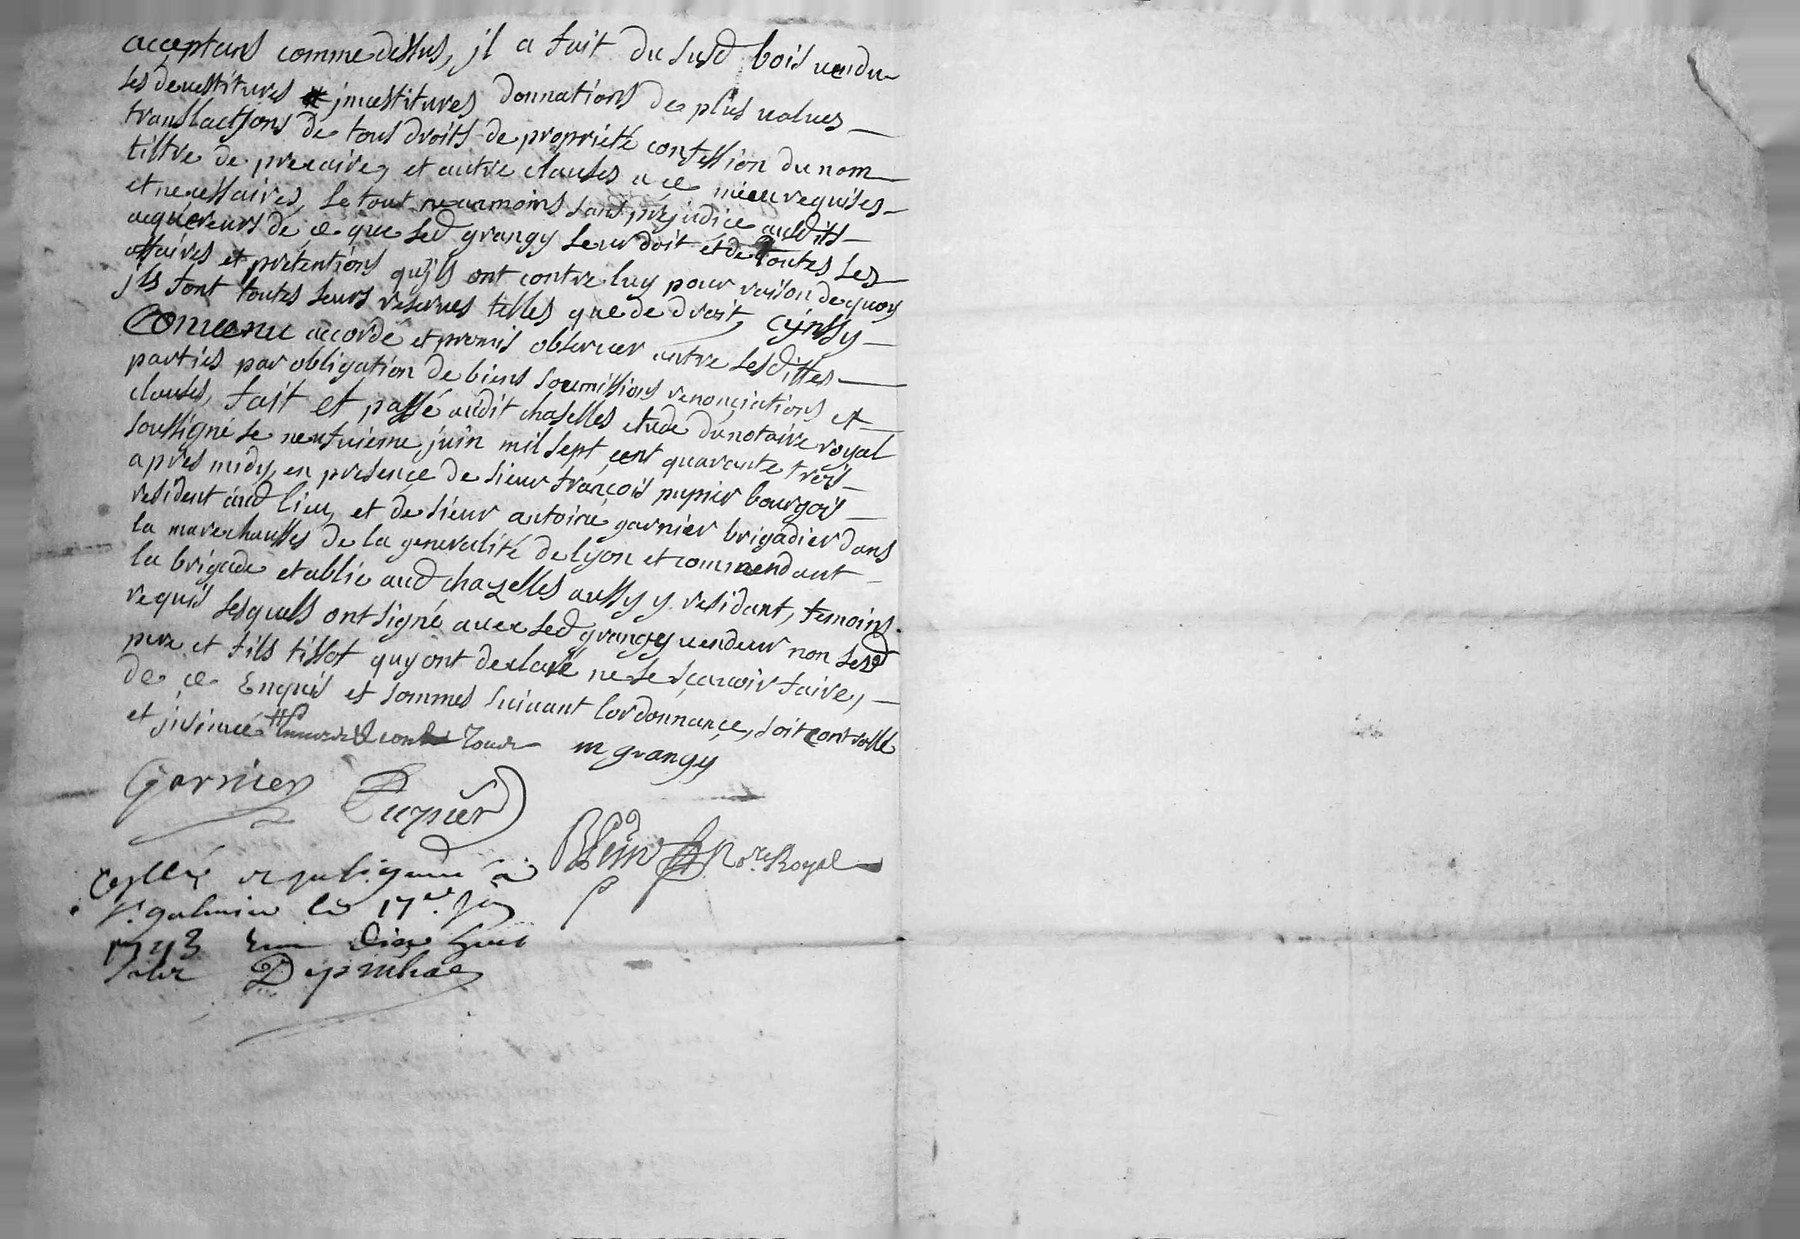 acceptans comme dessus, jl a fait du susd bois vendu
les devestitures jnvestitures donnations de plus values
translactions de tous droits de propriété confession du nom
tiltre de precaire, et autre clauses a ce mieux requises
et necessaires, le tout neanmoins sans prejudice ausdits
acquereurs de ce que led grangy leur doit et de toutes les
affaires et prétentions qu'jls ont contre luy pour raison de quoy
jls font toutes leurs reserves telles que de droit, Cÿnssy
Convenu accordé et promis observer entre lesdittes
parties par obligation de biens soumissions renonciations et
clauses, fait et passé audit chaselles etude du notaire royal
soussigné le neufvieme juin mil sept cent quarante trois
apres midy, en presence de sieur françois pupier bourgois
resident aud lieu, et de sieur antoine garnier brigadier dans
la marechaussés de la generalité de lyon et commendant
la brigade etablie aud chazelles aussy y residant, temoins
requis lesquels ont signé avec led grangy vendeur non lesd
pere et fils tissot quy ont declaré ne le sçavoir faire,
de ce Enquis et sommes suivant lordonnance, soit controllé
et jnsinué
m grangy
Garnier Pupier
Nre Royal
a
st galmier le 17e
1743